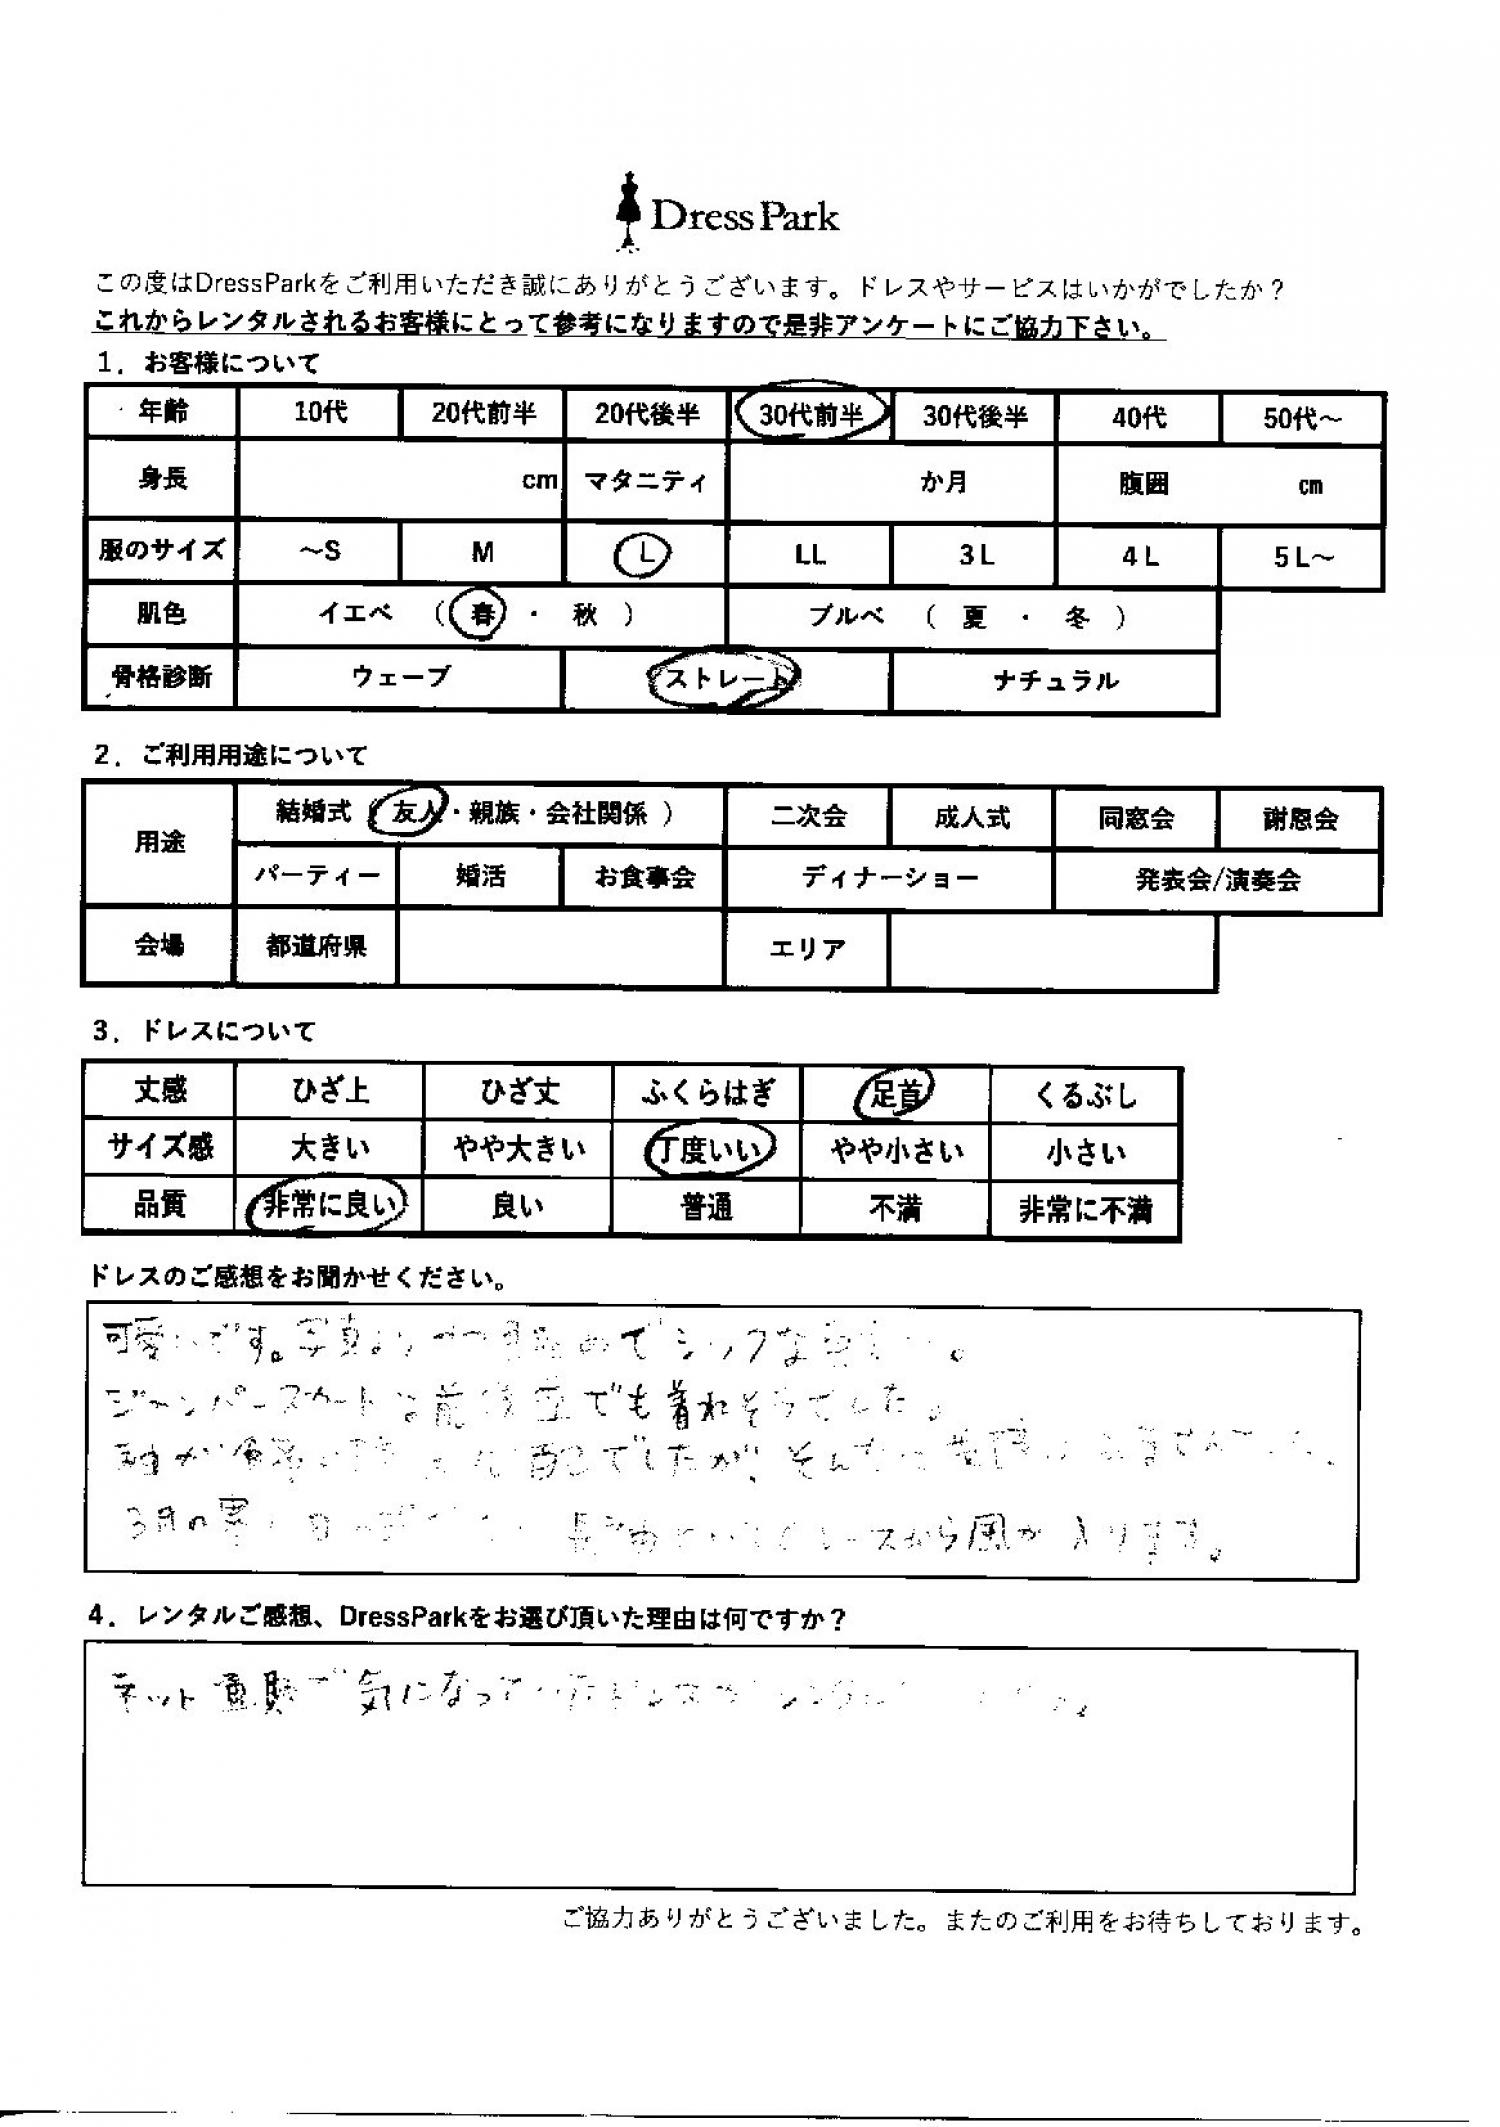 DressPark
この度はDressParkをご利用いただき誠にありがとうございます。ドレスやサービスはいかがでしたか？
これからレンタルされるお客様にとって参考になりますので是非アンケートにご協力下さい。
1．お客様について
年齢 10代 20代前半 20代後半 30代前半 30代後半 40代 50代～
身長 cm マタニティ か月 腹囲 cm
服のサイズ ～S M L LL 3L 4L 5L～
肌色 イエベ （ 春 ・ 秋 ） ブルベ （ 夏 ・ 冬 ）
骨格診断 ウェーブ ストレート ナチュラル
2．ご利用用途について
用途 結婚式（友人・親族・会社関係 ） 二次会 成人式 同窓会 謝恩会
パーティー 婚活 お食事会 ディナーショー 発表会/演奏会
会場 都道府県 エリア
3．ドレスについて
丈感 ひざ上 ひざ丈 ふくらはぎ 足首 くるぶし
サイズ感 大きい やや大きい 丁度いい やや小さい 小さい
品質 非常に良い 良い 普通 不満 非常に不満
ドレスのご感想をお聞かせください。
可愛いです。写真より めでシックな
ジャンパースカートは前後逆でも着れそうでした。
袖が 心配でしたが、そんな ませんでした。
3月の寒い レースから風が入ります。
4．レンタルご感想、DressParkをお選び頂いた理由は何ですか？
ネット通販で気になっていたドレスが
ご協力ありがとうございました。またのご利用をお待ちしております。